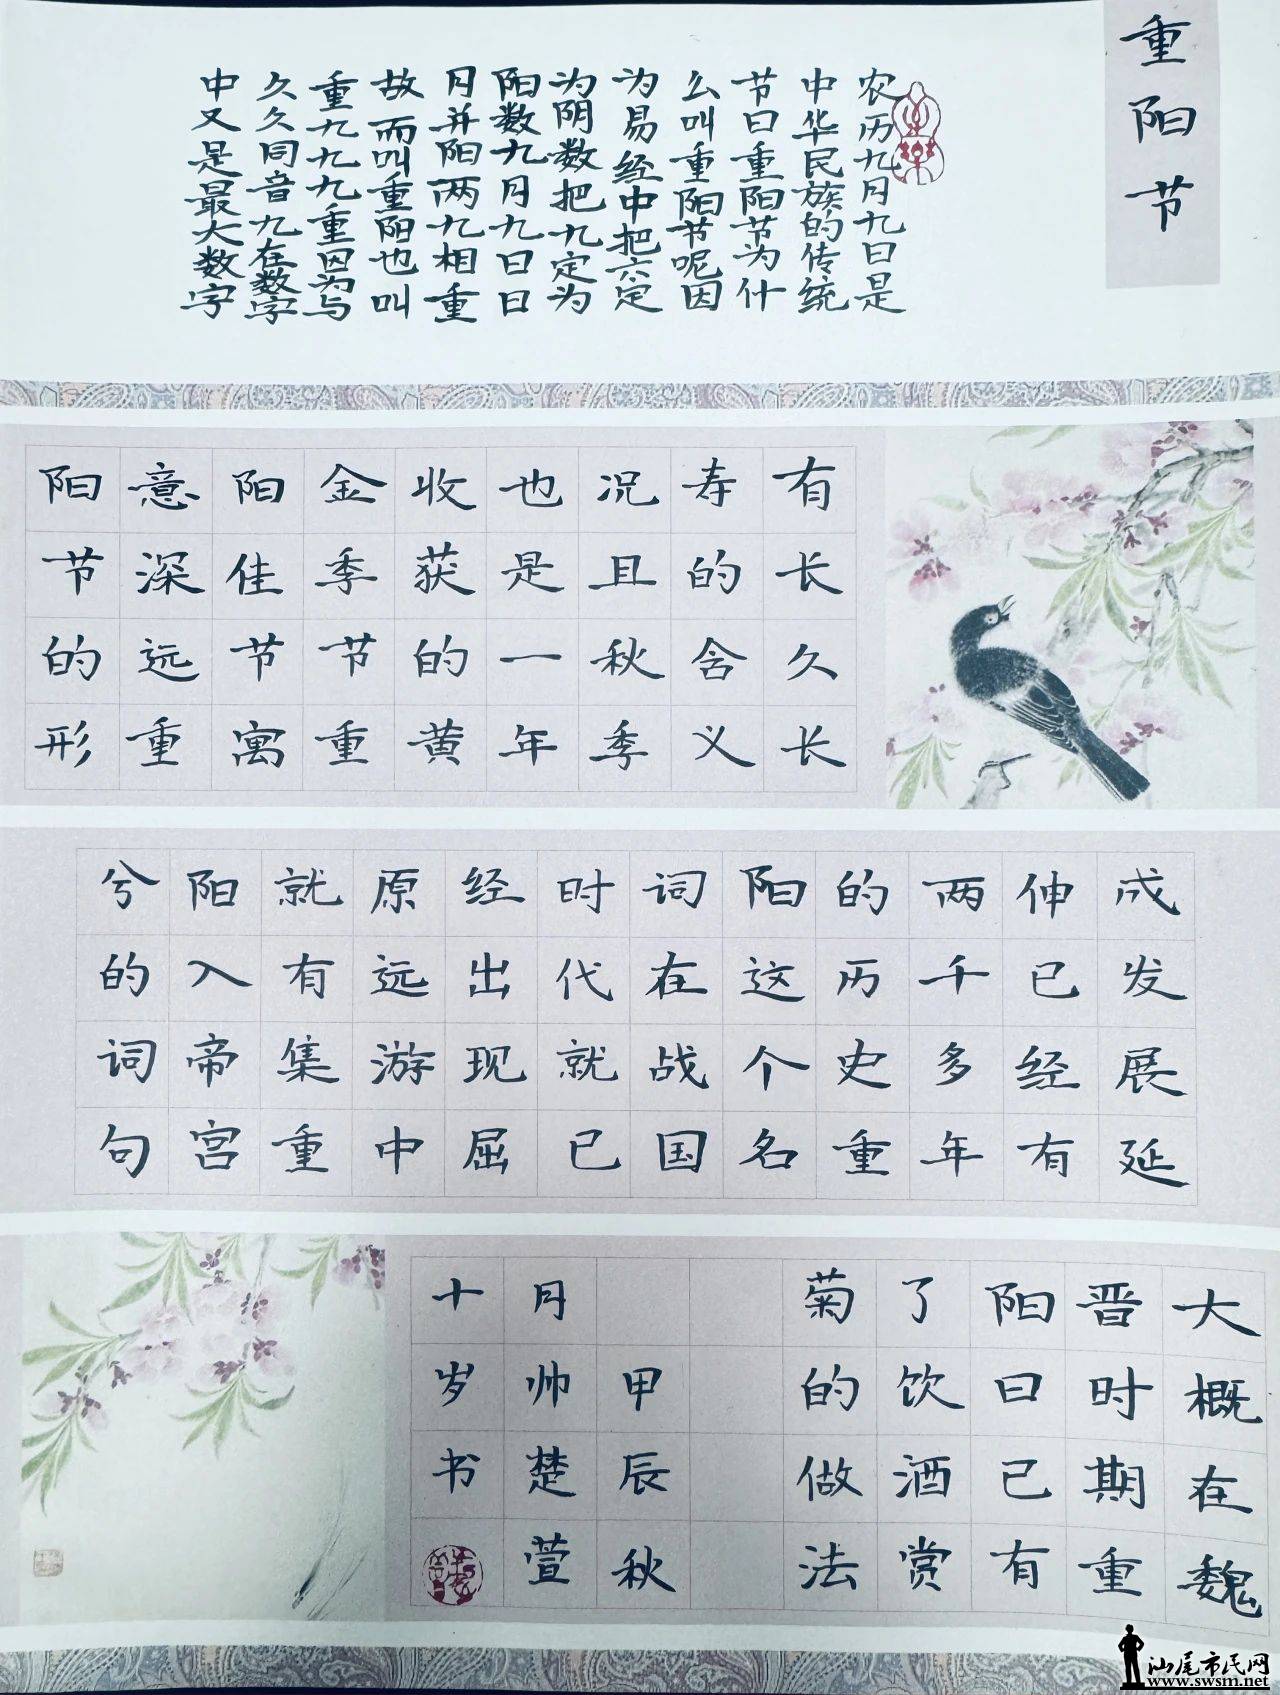 重阳节
农历九月九日是
中华民族的传统
节日重阳节为什
么叫重阳节呢因
为易经中把六定
为阴数把九定为
阳数九月九日日
月并阳两九相重
故而叫重阳也叫
重九九九重因为与
久久同音九在数字
中又是最大数字
有长久长
寿的含义
况且秋季
也是一年
收获的黄
金季节重
阳佳节寓
意深远重
阳节的形
成发展延
伸已经有
两千多年
的历史重
阳这个名
词在战国
时代就已
经出现屈
原远游中
就有集重
阳入帝宫
兮的词句
大概在魏
晋时期重
阳日已有
了饮酒赏
菊的做法
甲辰秋
月帅楚萱
十岁书
汕尾市民网
www.swsm.net